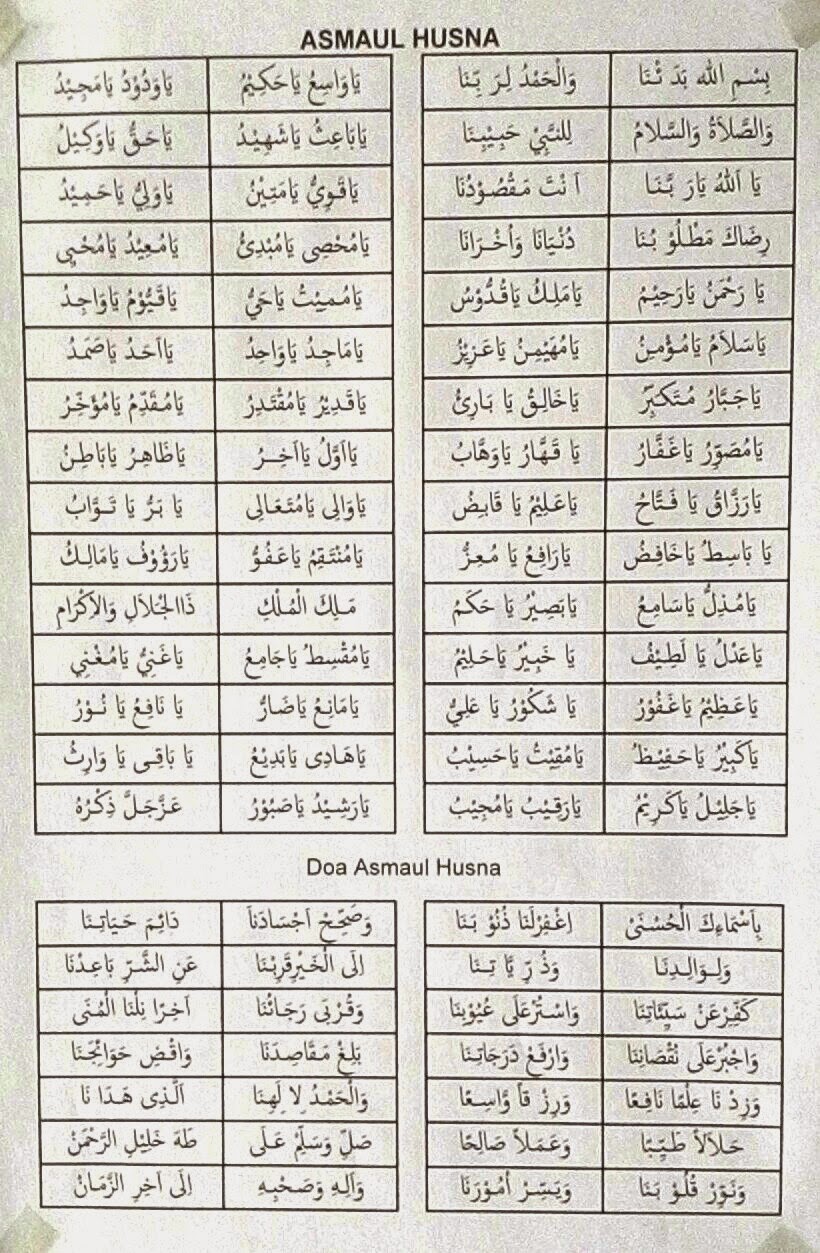 ASMAUL HUSNA
بِسْمِ الله بَدَ ئْنَا وَالْحَمْدُ لِرَ بِّنَا
وَالصَّلَاةُ وَالسَّلَامُ لِلنَّبِيْ حَبِيْبِنَا
يَا اَللهُ يَارَ بَّنَا اَ نْتَ مَقْصُوْدُنَا
رِضَاكَ مَطْلُوْ بُنَا دُنْيَانَا وَاُخْرَانَا
يَا رَحْمٰنُ يَارَحِيْمُ يَامَلِكُ يَاقُدُّوْسُ
يَاسَلَامُ يَامُؤْمِنُ يَامُهَيْمِنُ يَاعَزِيْزُ
يَاجَبَّارُ مُتَكَبِّرُ يَاخَالِقُ يَا بَارِئُ
يَامُصَوِّرُ يَاغَفَّارُ يَا قَهَّارُ يَاوَهَّابُ
يَارَزَّاقُ يَا فَتَّاحُ يَاعَلِيْمُ يَا قَابِضُ
يَا بَاسِطُ يَاخَافِضُ يَارَافِعُ يَا مُعِزُّ
يَامُذِلُّ يَاسَامِعُ يَابَصِيْرُ يَا حَكَمُ
يَاعَدْلُ يَا لَطِيْفُ يَا خَبِيْرُ يَاحَلِيْمُ
يَاعَظِيْمُ يَاغَفُوْرُ يَا شَكُوْرُ يَا عَلِيُّ
يَاكَبِيْرُ يَاحَفِيْظُ يَامُقِيْتُ يَاحَسِيْبُ
يَاجَلِيْلُ يَاكَرِيْمُ يَارَقِيْبُ يَامُجِيْبُ
يَاوَاسِعُ يَاحَكِيْمُ يَاوَدُوْدُ يَامَجِيْدُ
يَابَاعِثُ يَاشَهِيْدُ يَاحَقُّ يَاوَكِيْلُ
يَاقَوِيُّ يَامَتِيْنُ يَاوَلِيُّ يَاحَمِيْدُ
يَامُحْصِى يَامُبْدِئُ يَامُعِيْدُ يَامُحْيِى
يَامُمِيْتُ يَاحَيُّ يَاقَيُّوْمُ يَاوَاجِدُ
يَامَاجِدُ يَاوَاحِدُ يَااَحَدُ يَاصَمَدُ
يَاقَدِيْرُ يَامُقْتَدِرُ يَامُقَدِّمُ يَامُؤَخِّرُ
يَااَوَّلُ يَااٰخِرُ يَاظَاهِرُ يَابَاطِنُ
يَاوَالِى يَامُتَعَالِى يَا بَرُّ يَا تَوَّابُ
يَامُنْتَقِمُ يَاعَفُوُّ يَارَؤُوْفُ يَامَالِكُ
مَلِكَ الْمُلْكِ ذَاالْجَلَالِ وَالْاِكْرَامِ
يَامُقْسِطُ يَاجَامِعُ يَاغَنِيُّ يَامُغْنِي
يَامَانِعُ يَاضَارُّ يَا نَافِعُ يَا نُوْرُ
يَاهَادِى يَابَدِيْعُ يَا بَاقِى يَا وَارِثُ
يَارَشِيْدُ يَاصَبُوْرُ عَزَّجَلَّ ذِكْرُهُ
Doa Asmaul Husna
بِاَسْمَاءِكَ الْحُسْنَىْ اِغْفِرْلَنَا ذُنُوْ بَنَا
وَلِوَالِدِنَا وَذُ رِّ يَّا تِنَا
كَفِّرْعَنْ سَيِّئَاتِنَا وَاسْتُرْعَلَى عُيُوْبِنَا
وَاجْبُرْعَلَى نُقْصَانِنَا وَارْفَعْ دَرَجَاتِنَا
وَزِدْ نَا عِلْمًا نَافِعًا وَرِزْ قاً وَّاسِعًا
حَلَالاً طَيِّبًا وَعَمَلاً صَالِحًا
وَنَوِّرْ قُلُوْ بَنَا وَيَسِّرْ اُمُوْرَنَا
وَصَحِّحْ اَجْسَادَنَا دَائِمَ حَيَاتِنَا
اِلَى الْخَيْرِقَرِّبْنَا عَنِ الشَّرِّ بَاعِدْنَا
وَقُرْبَى رَجَائُنَا اَخِرًا نِلْنَا الْمُنَى
بَلِّغْ مَقَاصِدَنَا وَاقْضِ حَوَائِجَنَا
وَالْحَمْدُ لِا لٰهِنَا اَلَّذِى هَدَا نَا
صَلِّ وَسَلِّمْ عَلَى طَهَ خَلِيْلِ الرَّحْمٰنْ
وَاٰلِهِ وَصَحْبِهِ اِلَى اٰخِرِ الزَّمَانْ